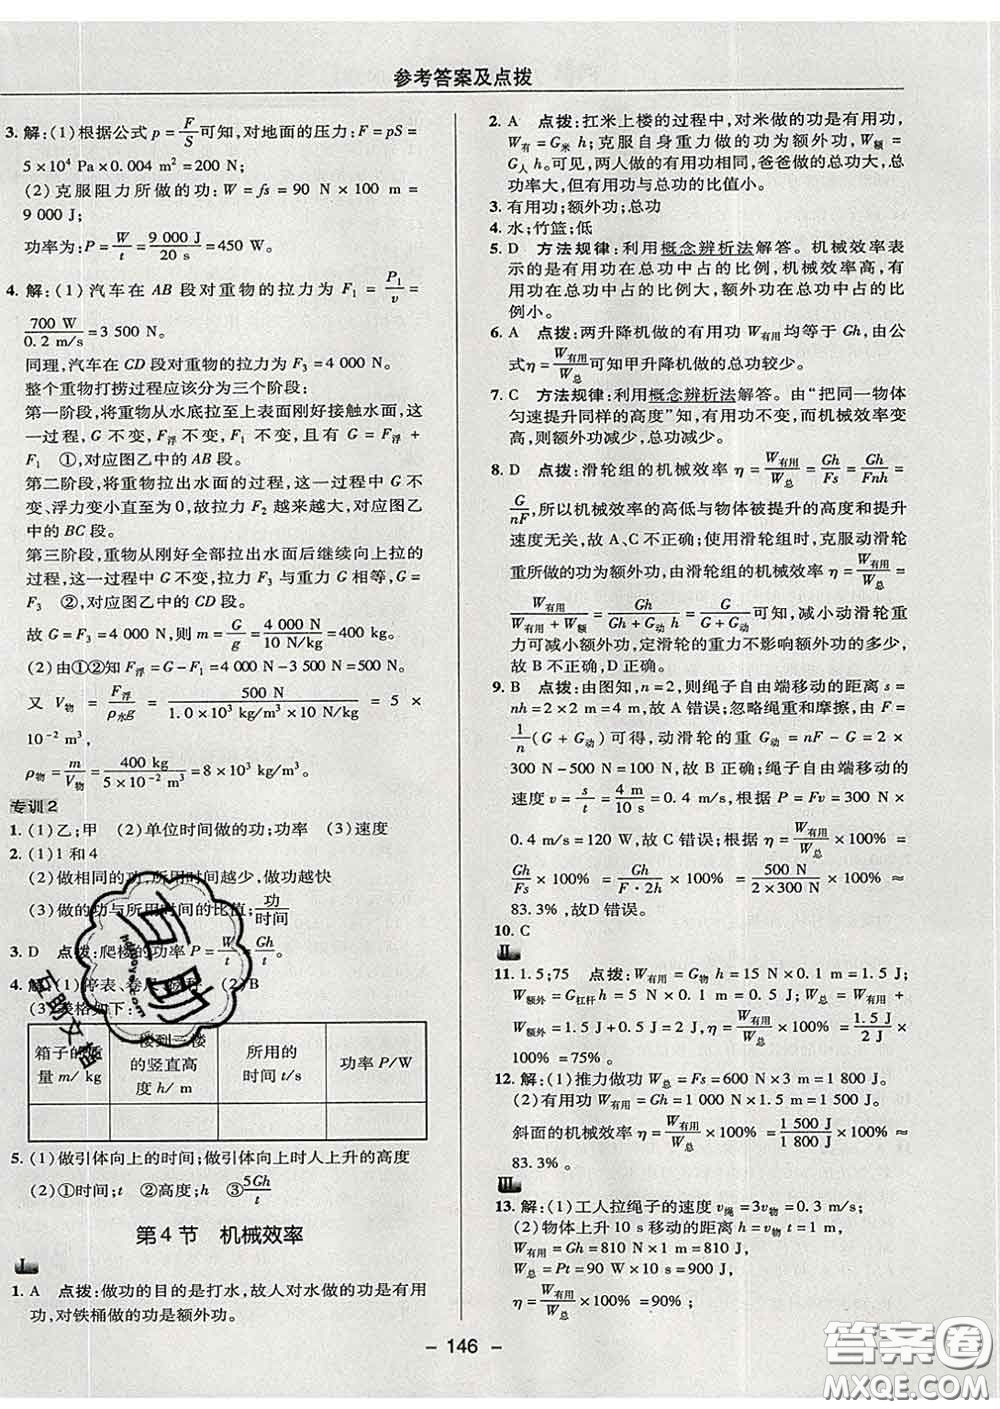 参考答案及点拨
3. 解:(1)根据公式 p=F/S 可知,对地面的压力:F=pS=
5×10⁴ Pa×0.004 m²=200 N;
(2)克服阻力所做的功:W=fs=90 N×100 m=
9 000 J;
功率为:P=W/t=9 000 J/20 s=450 W。
4. 解:(1)汽车在 AB 段对重物的拉力为 F₁=P₁/v=
700 W/0.2 m/s=3 500 N。
同理,汽车在 CD 段对重物的拉力为 F₃=4 000 N。
整个重物打捞过程应该分为三个阶段:
第一阶段,将重物从水底拉至上表面刚好接触水面,这
一过程,G 不变,F浮不变,F₁ 不变,且有 G=F浮+
F₁ ①,对应图乙中的 AB 段。
第二阶段,将重物拉出水面的过程,这一过程中 G 不
变、浮力变小直至为0,故拉力 F₂ 越来越大,对应图乙
中的 BC 段。
第三阶段,重物从刚好全部拉出水面后继续向上拉的
过程,这一过程中 G 不变,拉力 F₃ 与重力 G 相等,G=
F₃ ②,对应图乙中的 CD 段。
故 G=F₃=4 000 N,则 m=G/g=4 000 N/10 N/kg=400 kg.
(2)由①②知 F浮=G-F₁=4 000 N-3 500 N=500 N.
又 V物=F浮/ρ水g=500 N/1.0×10³ kg/m³×10 N/kg=5×
10⁻² m³,
ρ物=m/V物=400 kg/5×10⁻² m³=8×10³ kg/m³。
专训2
1. (1)乙;甲 (2)单位时间做的功;功率 (3)速度
2. (1)1 和 4
(2)做相同的功,所用时间越少,做功越快
(3)做的功与所用时间的比值;功/时间
3. D 点拨:爬楼的功率 P=W/t=Gh/t。
4. 解:(1)停表、卷尺、磅秤 (2)B
(3)表格如下:
箱子的质量 m/ kg
一楼到二楼的竖直高度 h/ m
所用的时间 t/s
功率 P/W
5. (1)做引体向上的时间;做引体向上时人上升的高度
(2)①时间;t ②高度;h ③5Gh/t
第 4 节 机械效率
Ⅰ
1. A 点拨:做功的目的是打水,故人对水做的功是有用
功,对铁桶做的功是额外功。
2. A 点拨:扛米上楼的过程中,对米做的功是有用功,
W有=G米 h; 克服自身重力做的功为额外功,W额=
G人 h。可见,两人做的有用功相同,爸爸做的总功大,总
功率大,但有用功与总功的比值小。
3. 有用功;额外功;总功
4. 水;竹篮;低
5. D 方法规律:利用概念辨析法解答。机械效率表
示的是有用功在总功中占的比例,机械效率高,有
用功在总功中占的比例大,额外功在总功中占的比
例小。
6. A 点拨:两升降机做的有用功 W有用均等于 Gh,由公
式η=W有用/W总可知甲升降机做的总功较少。
7. C 方法规律:利用概念辨析法解答。由“把同一物体
匀速提升同样的高度”知,有用功不变,而机械效率变
高,则额外功减少,总功减少。
8. D 点拨:滑轮组的机械效率 η=W有用/W总=Gh/Fs=Gh/Fnh=
G/nF,所以机械效率的高低与物体被提升的高度和提升
速度无关,故 A、C 不正确;使用滑轮组时,克服动滑轮
重所做的功为额外功,由滑轮组的机械效率 η=W有用/W总=
W有用/W有用+W额=Gh/Gh+G动 h=G/G+G动可知,减小动滑轮重
力可减少额外功,定滑轮的重力不影响额外功的多少,
故 B 不正确,D正确。
9. B 点拨:由图知,n=2,则绳子自由端移动的距离 s=
nh=2×2 m=4 m,故 A 错误;忽略绳重和摩擦,由 F=
1/n(G+G动)可得,动滑轮的重 G动=nF-G=2×
300 N-500 N=100 N,故 B 正确;绳子自由端移动的
速度 v=s/t=4 m/10 s=0.4 m/s,根据 P=Fv=300 N×
0.4 m/s=120 W,故 C 错误;根据 η=W有用/W总×100%=
Gh/Fs×100%=Gh/F·2h×100%=500 N/2×300 N×100%≈
83.3%,故D 错误。
10. C
Ⅱ
11. 1.5;75 点拨:W有用=G物 h=15 N×0.1 m=1.5 J;
W额外=G杠杆 h=5 N×0.1 m=0.5 J;W总=W有用+
W额外=1.5 J+0.5 J=2 J,η=W有用/W总×100%=1.5 J/2 J×
100%=75%。
12. 解:(1)推力做功 W总=Fs=600 N×3 m=1 800 J。
(2)有用功 W有用=Gh=1 000 N×1.5 m=1 500 J。
斜面的机械效率 η=W有用/W总×100%=1 500 J/1 800 J×100%≈
83.3%。
Ⅲ
13. 解:(1)工人拉绳子的速度 v绳=3v物=0.3 m/s;
(2)物体上升 10 s 移动的距离 h=v物 t=1 m,
W有用=Gh=810 N×1 m=810 J,
W总=Pt=90 W×10 s=900 J,
η=W有用/W总×100%=90%;
- 146 -
互助
互助文档
答案圈
MXQE.COM